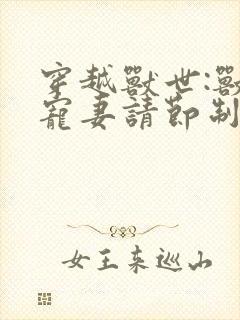 穿越獸世:獸
寵妻請節制
女王來巡山